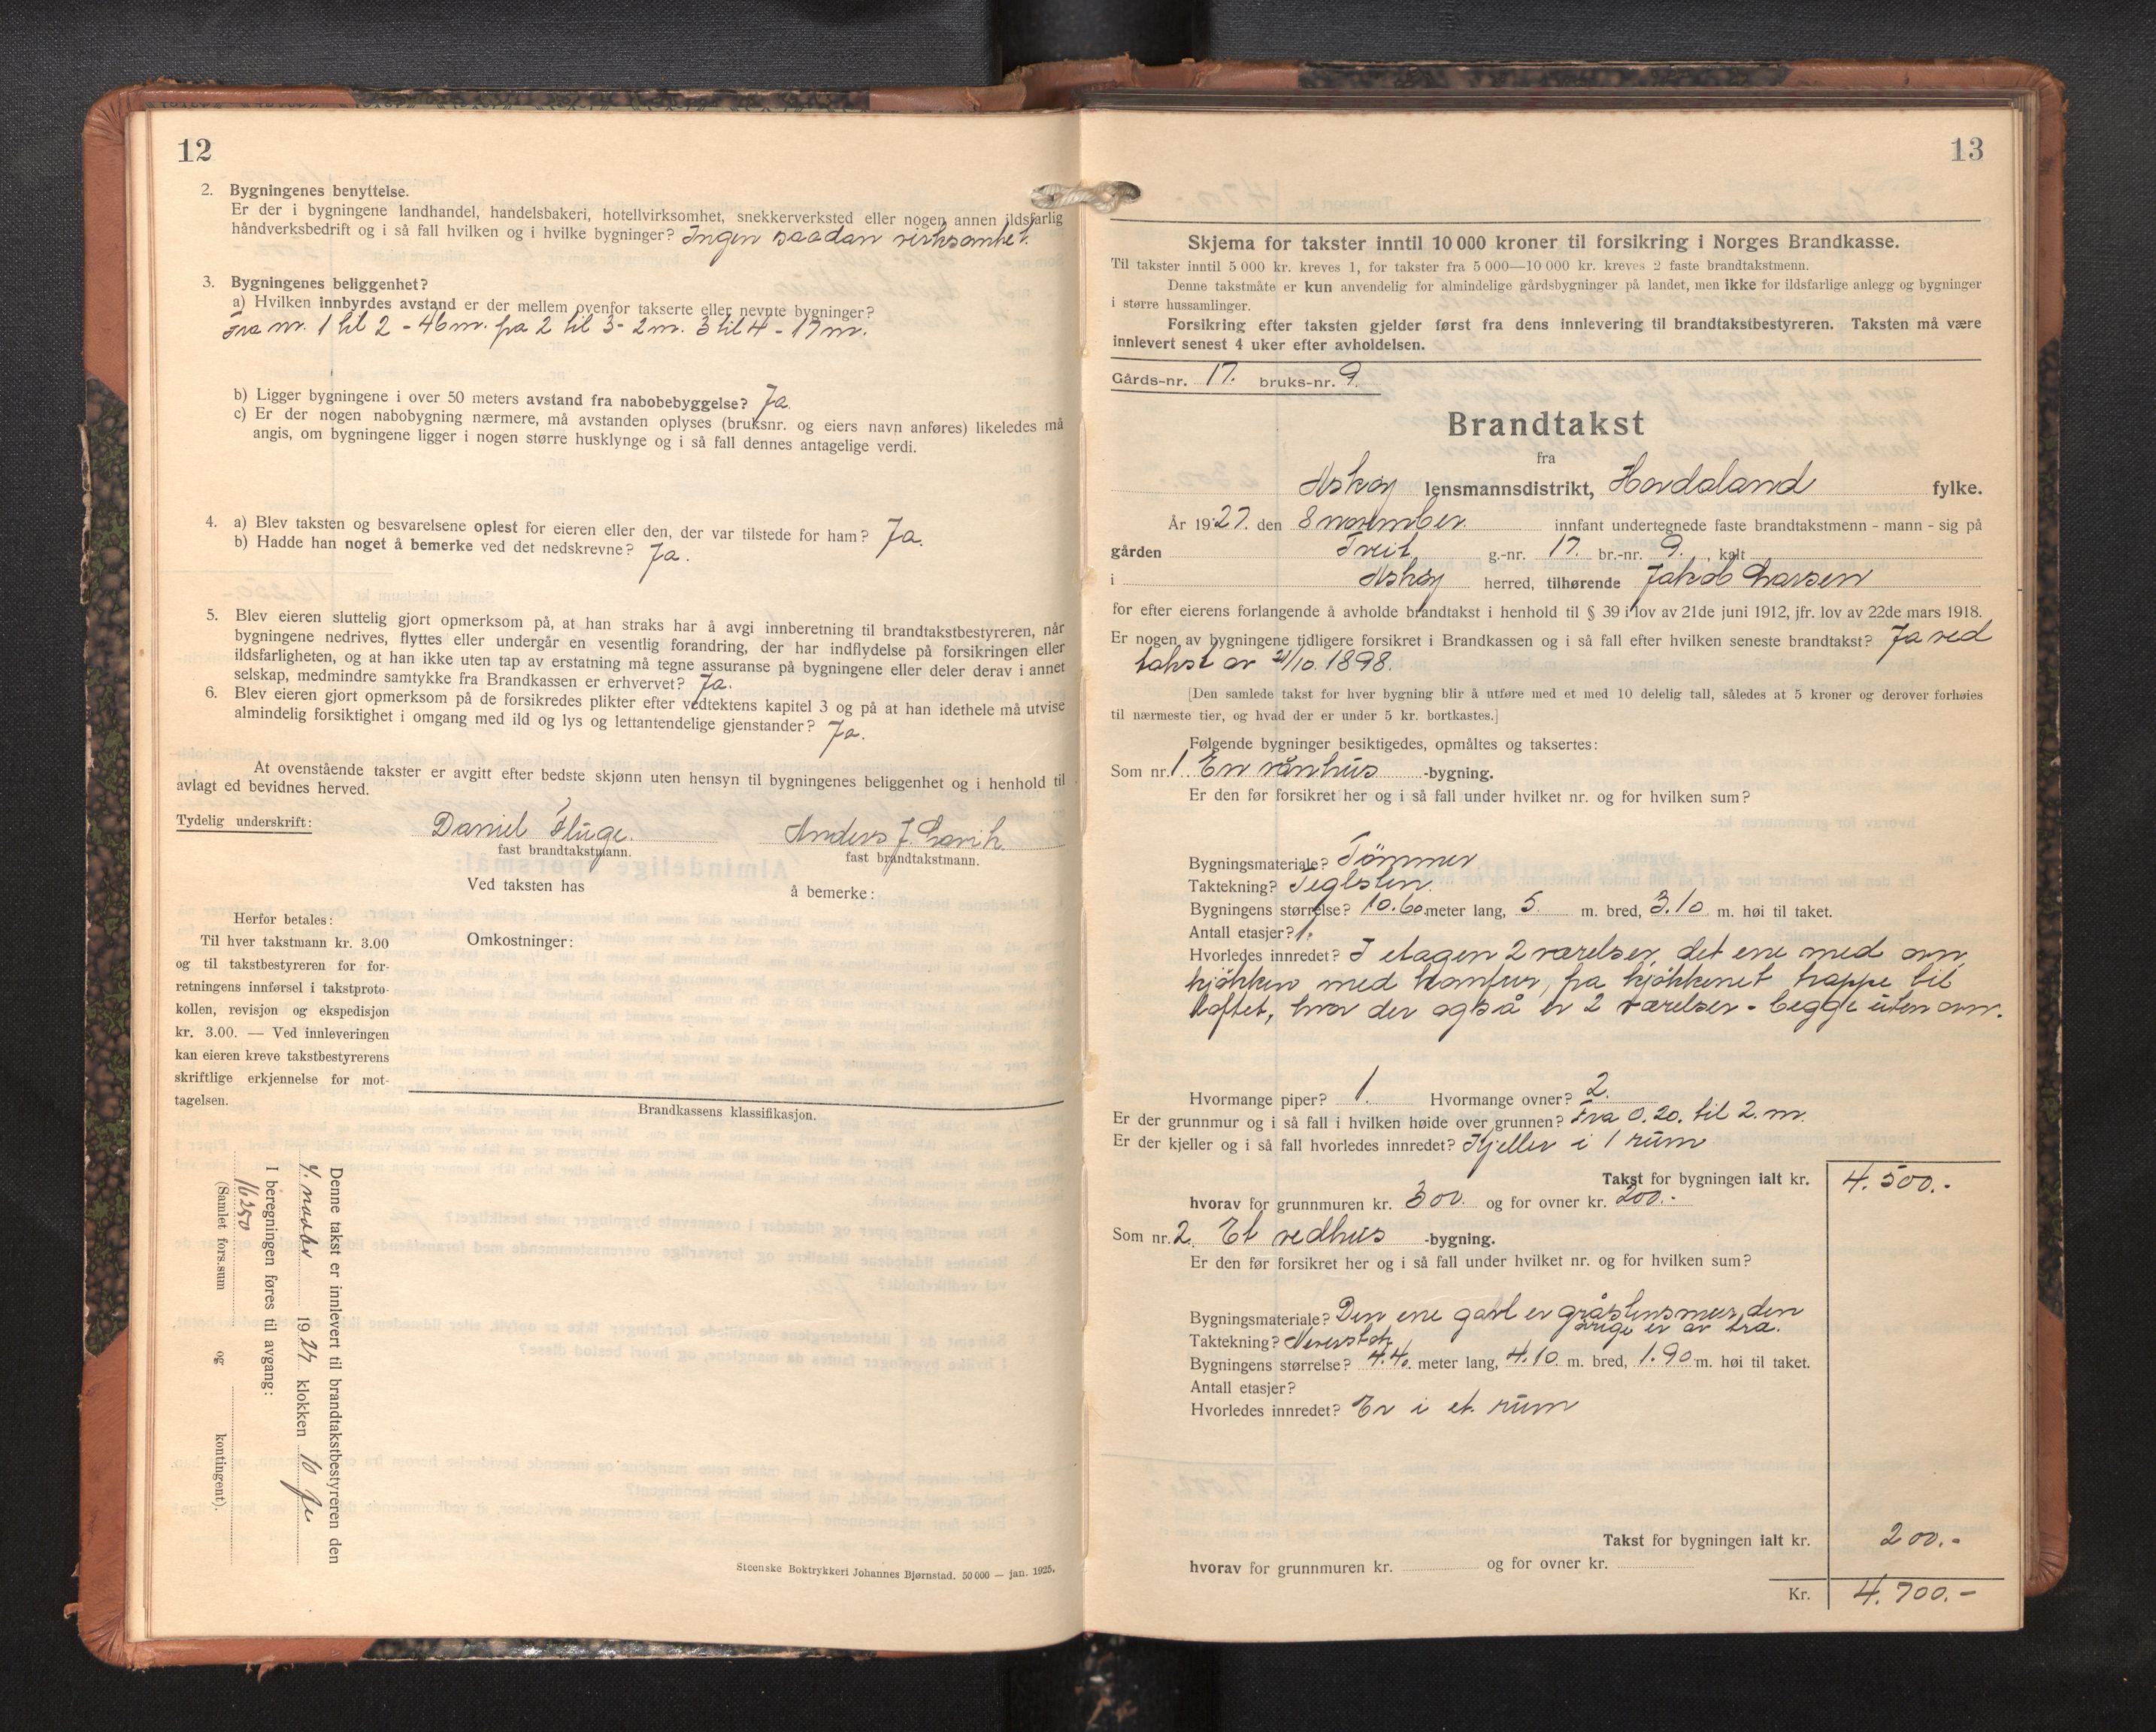 12
2. Bygningenes benyttelse.
Er der i bygningene landhandel, handelsbakeri, hotellvirksomhet, snekkerverksted eller nogen annen ildsfarlig
håndverksbedrift og i så fall hvilken og i hvilke bygninger? Ingen saadan virksomhet.
3. Bygningenes beliggenhet?
a) Hvilken innbyrdes avstand er der mellem ovenfor takserte eller nevnte bygninger?
Fra nr. 1 til 2 - 46 m. fra 2 til 3 - 2 m. 3 til 4 - 17 m.
b) Ligger bygningene i over 50 meters avstand fra nabobebyggelse? Ja.
c) Er der nogen nabobygning nærmere, må avstanden oplyses (bruksnr. og eiers navn anføres) likeledes må
angis, om bygningene ligger i nogen større husklynge og i så fall dennes antagelige verdi.
4. a) Blev taksten og besvarelsene oplest for eieren eller den, der var tilstede for ham? Ja.
b) Hadde han noget å bemerke ved det nedskrevne? Ja.
5. Blev eieren sluttelig gjort opmerksom på, at han straks har å avgi innberetning til brandtakstbestyreren, når
bygningene nedrives, flyttes eller undergår en vesentlig forandring, der har indflydelse på forsikringen eller
ildsfarligheten, og at han ikke uten tap av erstatning må tegne assuranse på bygningene eller deler derav i annet
selskap, medmindre samtykke fra Brandkassen er erhvervet? Ja.
6. Blev eieren gjort opmerksom på de forsikredes plikter efter vedtektens kapitel 3 og på at han idethele må utvise
almindelig forsiktighet i omgang med ild og lys og lettantendelige gjenstander? Ja.
At ovenstående takster er avgitt efter bedste skjønn uten hensyn til bygningenes beliggenhet og i henhold til
avlagt ed bevidnes herved.
Tydelig underskrift: Daniel Fluge. Anders J. Lavik
fast brandtakstmann. fast brandtakstmann.
Ved taksten has å bemerke:
Herfor betales:
Til hver takstmann kr. 3.00
og til takstbestyreren for for-
retningens innførsel i takstproto-
kollen, revisjon og ekspedisjon
kr. 3.00. — Ved innleveringen
kan eieren kreve takstbestyrerens
skriftlige erkjennelse for mot-
tagelsen.
Omkostninger:
Brandkassens klassifikasjon.
Denne takst er innlevert til brandtakstbestyreren den
4. novbr 1927 klokken 10 fm
I beregningen føres til avgang:
16250
(Samlet fors.sum og kontingent).
Steenske Boktrykkeri Johannes Bjørnstad. 50 000 — jan. 1925.
13
Skjema for takster inntil 10 000 kroner til forsikring i Norges Brandkasse.
Til takster inntil 5 000 kr. kreves 1, for takster fra 5 000—10 000 kr. kreves 2 faste brandtakstmenn.
Denne takstmåte er kun anvendelig for almindelige gårdsbygninger på landet, men ikke for ildsfarlige anlegg og bygninger
i større hussamlinger.
Forsikring efter taksten gjelder først fra dens innlevering til brandtakstbestyreren. Taksten må være
innlevert senest 4 uker efter avholdelsen.
Gårds-nr. 17. bruks-nr. 9.
Brandtakst
fra
Askøy lensmannsdistrikt, Hordaland fylke.
År 1927. den 8 november innfant undertegnede faste brandtakstmenn - mann - sig på
gården Tveit g.-nr. 17. br.-nr. 9. , kalt
i Askøy herred, tilhørende Jakob Larsen
for efter eierens forlangende å avholde brandtakst i henhold til § 39 i lov av 21de juni 1912, jfr. lov av 22de mars 1918.
Er nogen av bygningene tidligere forsikret i Brandkassen og i så fall efter hvilken seneste brandtakst? Ja ved
takst av 21/10. 1898.
[Den samlede takst for hver bygning blir å utføre med et med 10 delelig tall, således at 5 kroner og derover forhøies
til nærmeste tier, og hvad der er under 5 kr. bortkastes.]
Følgende bygninger besiktigedes, opmåltes og taksertes:
Som nr. 1. En vånhus -bygning.
Er den før forsikret her og i så fall under hvilket nr. og for hvilken sum?
Bygningsmateriale? Tömmer
Taktekning? Teglsten.
Bygningens størrelse? 10.60 meter lang, 5. m. bred, 3.10 m. høi til taket.
Antall etasjer? 1.
Hvorledes innredet? I etagen 2 værelser, det ene med ovn,
kjökken med komfur, fra kjökkenet trappe til
loftet, hvor der også er 2 værelser - begge uten ovn.
Hvormange piper? 1. Hvormange ovner? 2.
Er der grunnmur og i så fall i hvilken høide over grunnen? Fra 0.20. til 2. m.
Er der kjeller og i så fall hvorledes innredet? Kjeller i 1 rum
Takst for bygningen ialt kr. 4.500.-
hvorav for grunnmuren kr. 300. og for ovner kr. 200.-
Som nr. 2. Et vedhus -bygning.
Er den før forsikret her og i så fall under hvilket nr. og for hvilken sum?
Bygningsmateriale? Den ene gavl er gråstensmur, den
övrige er av tra.
Taktekning?
Bygningens størrelse? 4.40 meter lang, 4.10 m. bred, 1.90 m. høi til taket.
Antall etasjer?
Hvorledes innredet? Er i et rum
Takst for bygningen ialt kr. 200.-
hvorav for grunnmuren kr. og for ovner kr.
Kr. 4.700.-